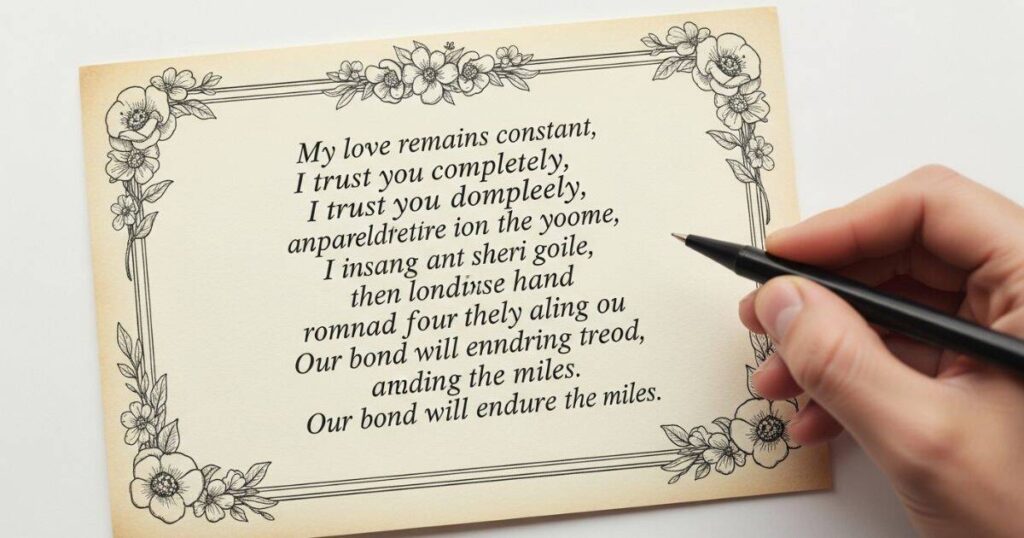 My love remains constant,
I trust you completely,
I trust you dompleely,
anpareldretire ion the yoome,
I insang ant sheri goile,
then londinse hand
romnad four thely aling ou
Our bond will enndring treod,
amding the miles.
Our bond will endure the miles.